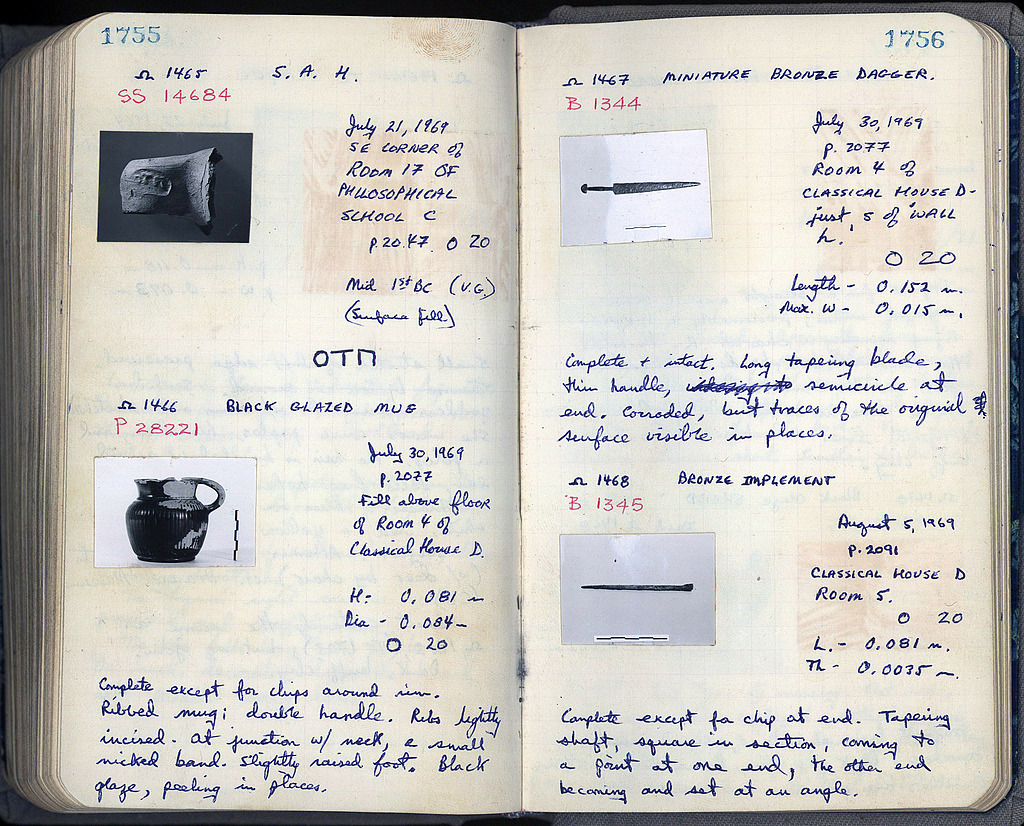 1755
Ω 1465 S. A. H.
SS 14684
July 21, 1969
SE CORNER OF
ROOM 17 OF
PHILOSOPHICAL
SCHOOL C
p. 2047 O 20
Mid 1st BC (V.G.)
(Surface fill)
ΟΤΠ
Ω 1466 BLACK GLAZED MUG
P 28221
July 30, 1969
p. 2077
Fill above floor
of Room 4 of
Classical House D.
H: 0.081 m
Dia - 0.084 m
O 20
Complete except for chips around rim.
Ribbed mug; double handle. Ribs lightly
incised. At junction w/ neck, a small
nicked band. Slightly raised foot. Black
glaze, peeling in places.
1756
Ω 1467 MINIATURE BRONZE DAGGER.
B 1344
July 30, 1969
p. 2077
ROOM 4 of
CLASSICAL HOUSE D-
just S of WALL
h.
O 20
Length - 0.152 m.
Max. W - 0.015 m.
Complete + intact. Long tapering blade,
thin handle, semicircle at
end. Corroded, but traces of the original
surface visible in places.
Ω 1468 BRONZE IMPLEMENT
B 1345
August 5, 1969
P. 2091
CLASSICAL HOUSE D
ROOM 5.
O 20
L. - 0.081 m.
Th - 0.0035 m.
Complete except for chip at end. Tapering
shaft, square in section, coming to
a point at one end, the other end
becoming and set at an angle.